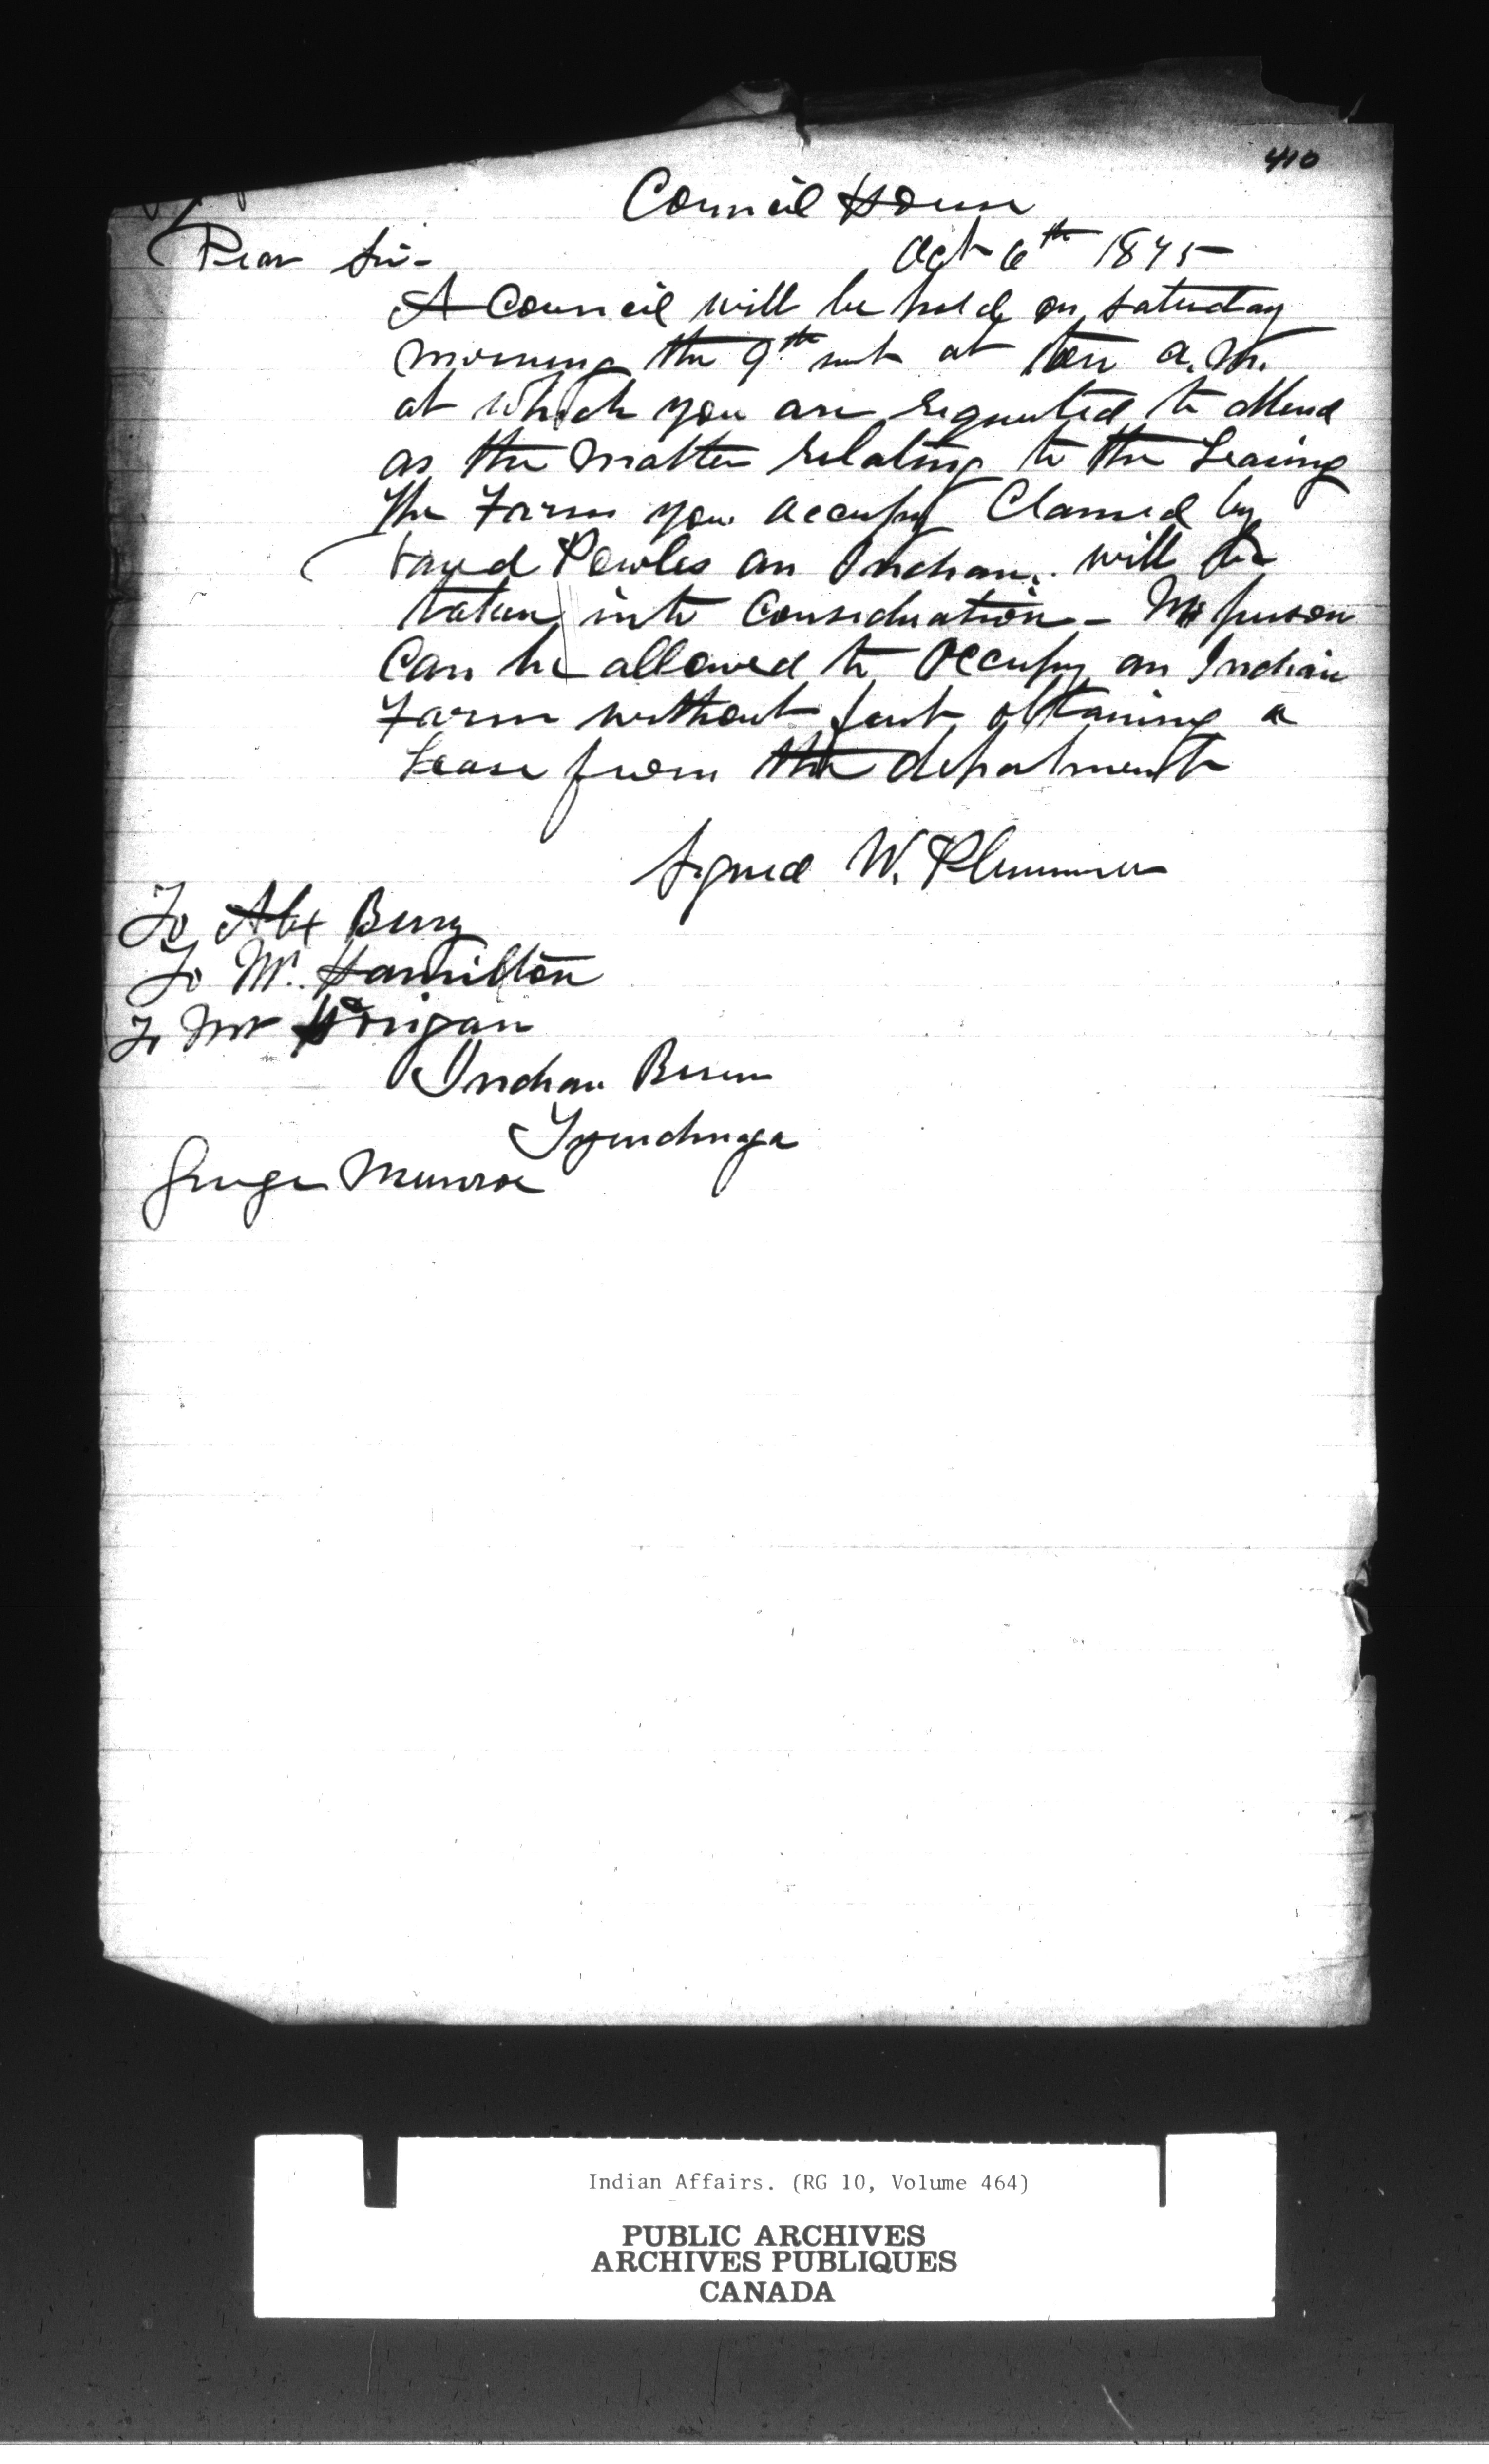 410
Council House
Dear Sir - Oct 6th 1875
A Council will be held on Saturday
morning the 9th inst at ten a.m.
at which you are requested to attend
as the matter relating to the Leasing
the Farm you occupy Claimed by
Powles an Indian. will be
taken into Consideration - No person
Can be allowed to Occupy an Indian
Farm without first obtaining a
Lease from the department
Signed W. Plummer
To Alex
To Mr. Hamilton
To Mr Horigan
Indian
Tyendinaga
George Munroe
Indian Affairs. (RG 10, Volume 464)
PUBLIC ARCHIVES
ARCHIVES PUBLIQUES
CANADA